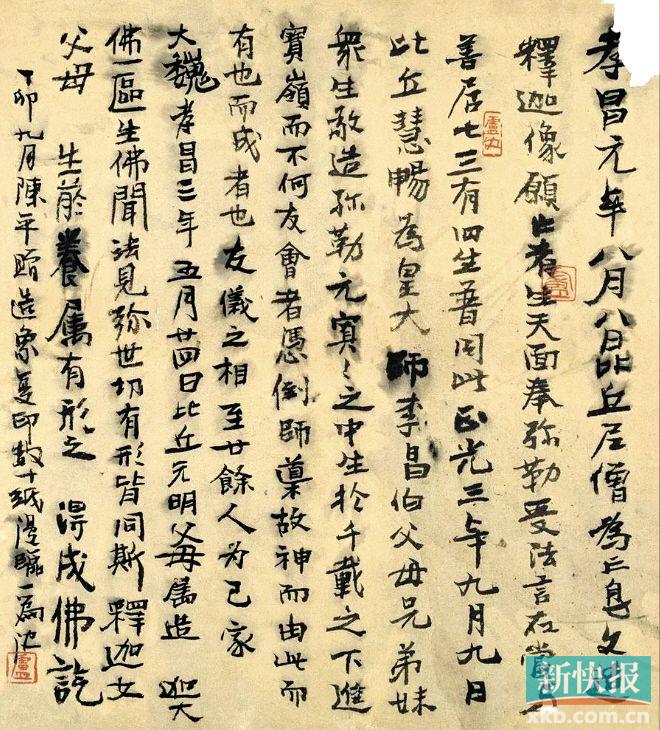 孝昌元年八月八日比丘尼僧為亡息文
釋迦像願亡者生天面奉弥勒受法言在
善居七三有四生普同此正光三年九月九日
比丘慧暢為皇大師李昌伯父母兄弟妹
衆生敬造弥勒元寘之中生於千載之下進
寶嶺而不何友會者憑倒師稟故神而由此而
有也而成者也友儀之相至廿餘人为已家
大魏孝昌三年五月廿四日比丘元明父母屬造迦大
佛一區生佛聞法見弥世切有形皆同斯釋迦文
父母生於養屬有形之得成佛訖
丁卯九月陳年贈造象复印数十紙漫臨一為
盧
新快报
xkb.com.cn